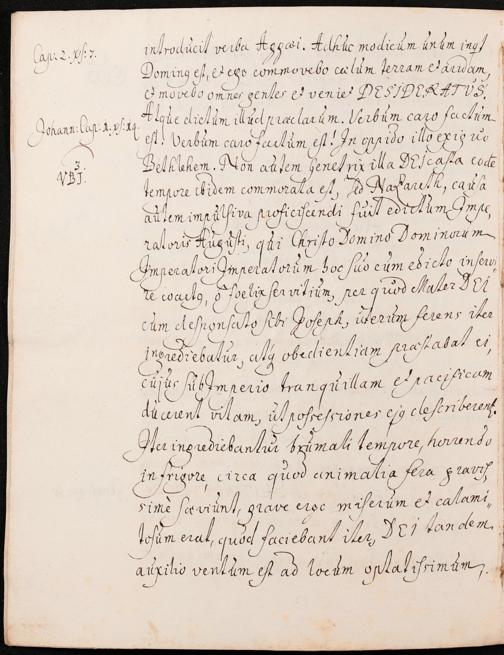 Cap: 2. xs: 7.
introducit verba Aggæi. Adhuc modicum unum inqt
Doming est, et ego commovebo cœlum terram et aridam,
et movebo omnes gentes et veniet DESIDERATUS,
Johann: Cap: 1. xs: 14.
Atque dictum illud præclarum. Verbum caro factum
est! Verbum caro factum est! In oppido illo exiguo
3.
VBI.
Bethlehem. Non autem genetrix illa DEI casta eode
tempore ibidem commorata est, sed Nazareth, causa
autem impulsiva proficiscendi fuit edictum Impe,,
ratoris Augusti, qui Christo Domino Dominorum
Imperatori Imperatorum hoc suo eum edicto inservi,,
re coacto, o fœlix servitium, per quod Mater DEI
cum desponsato sibi Joseph, uterum ferens iter
ingrediebatur, atq obedientiam præstabat ei,
cujus sub Imperio tranquillam et pacificam
ducerent vitam, ut possessiones ejq describerent.
Iter ingrediebantur brumali tempore, horrendo
in frigore, circa quod animalia fera gravis,,
sime sæviunt, grave ergo miserum et calami,,
tosum erat, quod faciebant iter, DEI tandem
auxilio ventum est ad locum optatissimum,